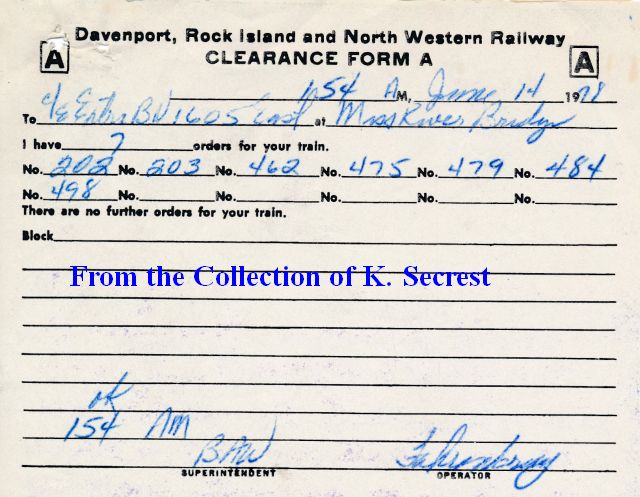 Davenport, Rock Island and North Western Railway
A CLEARANCE FORM A A
154 A M, June 14 1978
To C/E Extra BN 1605 East at Miss River Bridge
I have 7 orders for your train.
No. 202 No. 203 No. 462 No. 475 No. 479 No. 484
No. 498 No. No. No. No. No.
There are no further orders for your train.
Block
From the Collection of K. Secrest
ok
154 AM
BAW
SUPERINTENDENT OPERATOR